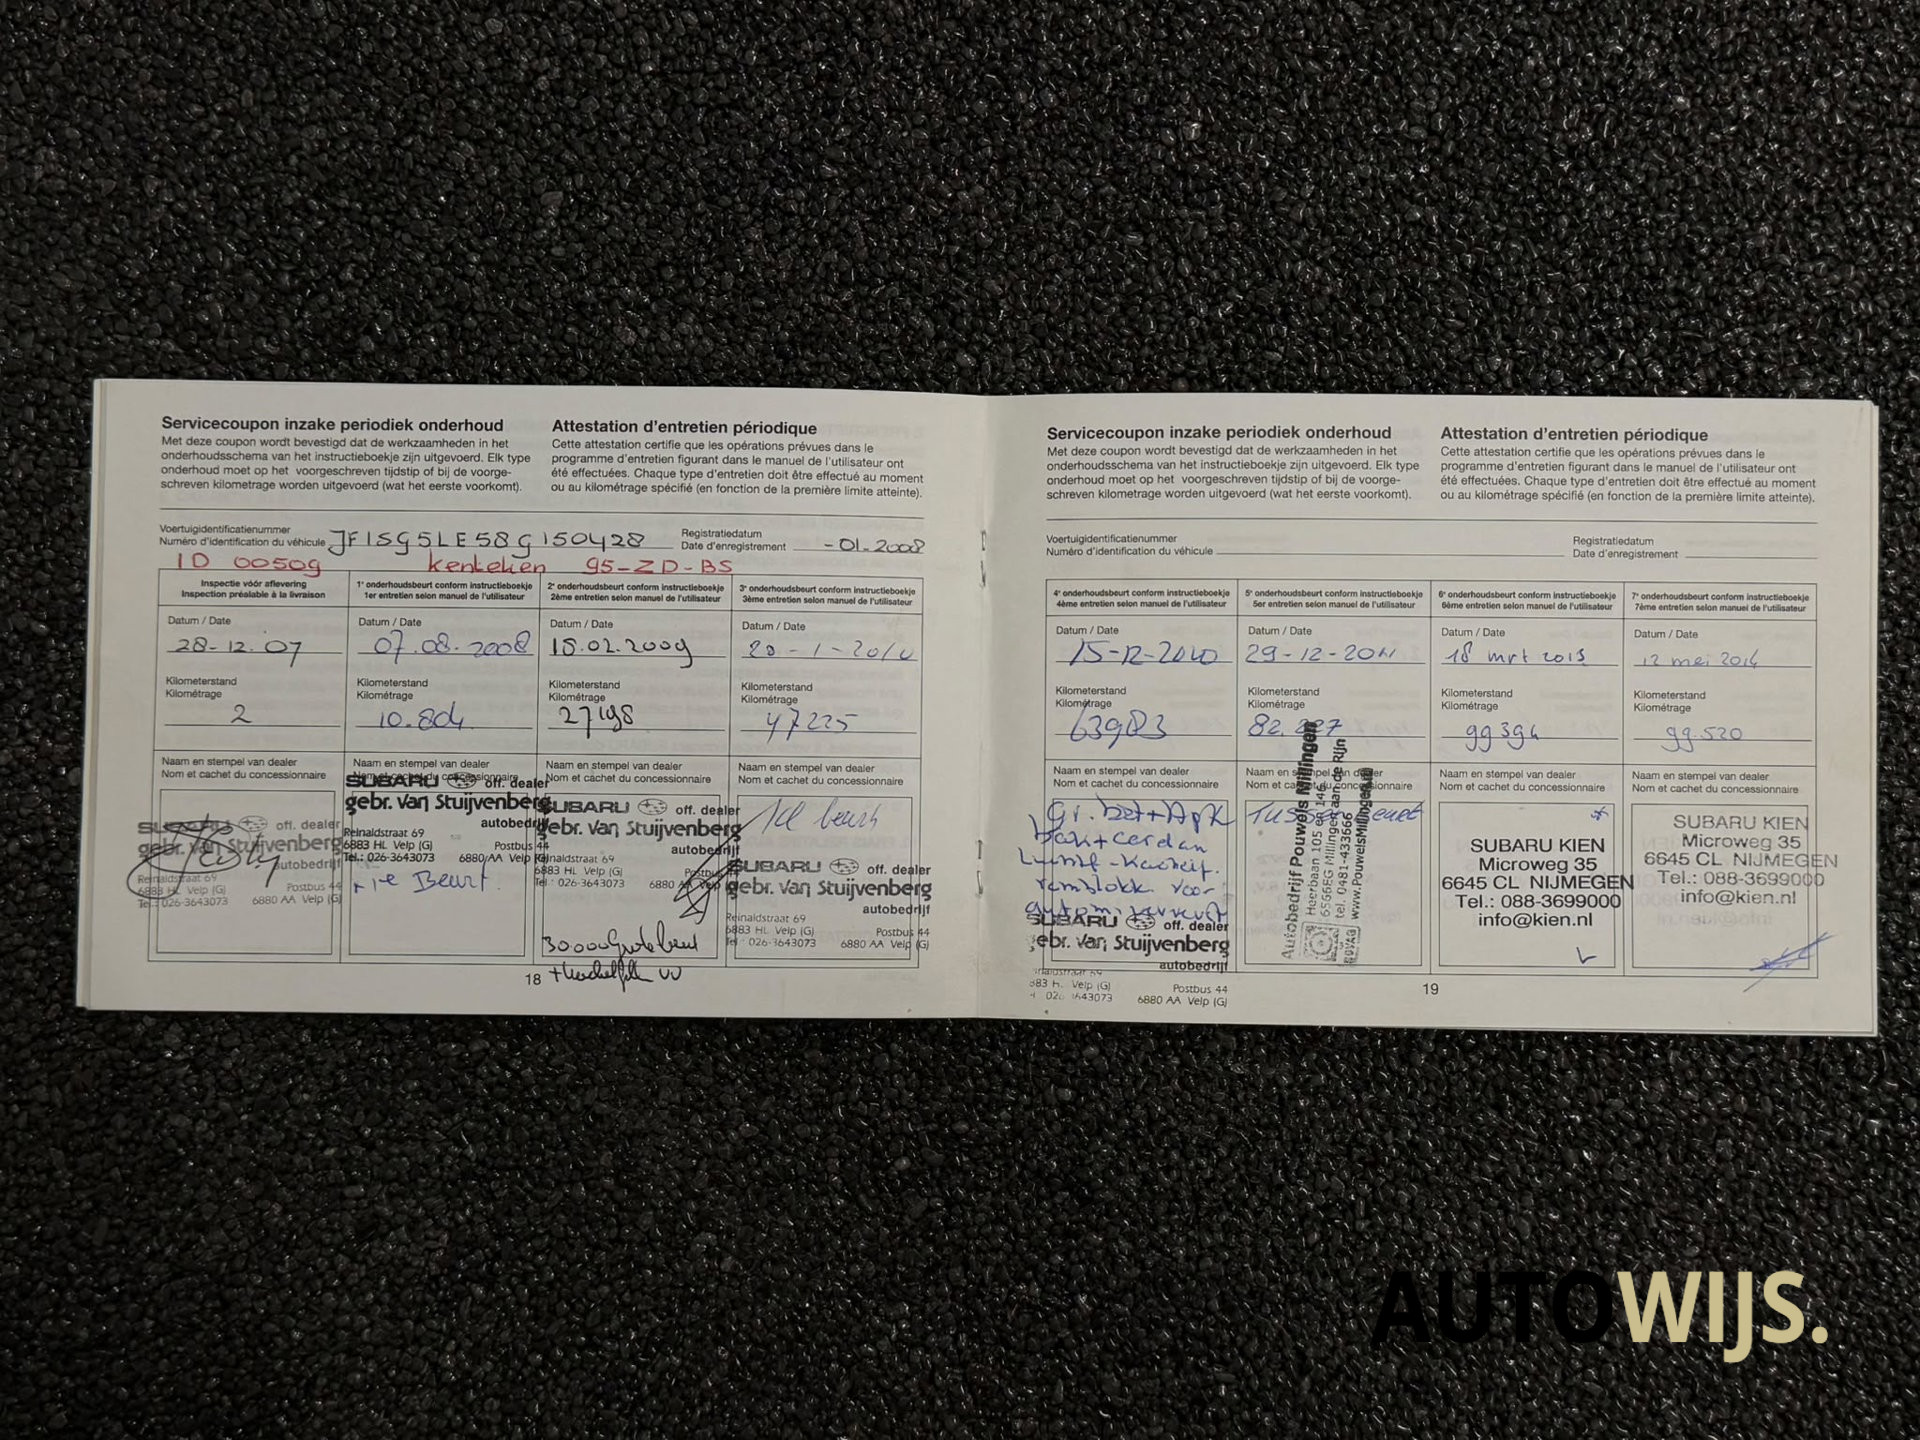 Servicecoupon inzake periodiek onderhoud
Met deze coupon wordt bevestigd dat de werkzaamheden in het
onderhoudsschema van het instructieboekje zijn uitgevoerd. Elk type
onderhoud moet op het voorgeschreven tijdstip of bij de voorge-
schreven kilometrage worden uitgevoerd (wat het eerste voorkomt).
Attestation d'entretien périodique
Cette attestation certifie que les opérations prévues dans le
programme d'entretien figurant dans le manuel de l'utilisateur ont
été effectuées. Chaque type d'entretien doit être effectué au moment
ou au kilométrage spécifié (en fonction de la première limite atteinte).
Voertuigidentificatienummer
Numéro d'identification du véhicule JF1SG5LE58G150428
Registratiedatum
Date d'enregistrement -01.2008
ID 00509 kenteken 95-ZD-BS
Inspectie vóór aflevering
Inspection préalable à la livraison
Datum / Date
28-12.07
Kilometerstand
Kilométrage
2
Naam en stempel van dealer
Nom et cachet du concessionnaire
SUBARU off. dealer
gebr. van Stuijvenberg
autobedrijf
Reinaldstraat 69
6883 HL Velp (G) Postbus 44
Tel.: 026-3643073 6880 AA Velp (G)
1e onderhoudsbeurt conform instructieboekje
1er entretien selon manuel de l'utilisateur
Datum / Date
07.08.2008
Kilometerstand
Kilométrage
10.804
Nom et cachet du concessionnaire
SUBARU off. dealer
gebr. van Stuijvenberg
autobedrijf
Reinaldstraat 69
6883 HL Velp (G) Postbus 44
Tel.: 026-3643073 6880 AA Velp (G)
1e Beurt
2e onderhoudsbeurt conform instructieboekje
2ème entretien selon manuel de l'utilisateur
Datum / Date
18.02.2009
Kilometerstand
Kilométrage
27198
Naam en stempel van dealer
Nom et cachet du concessionnaire
SUBARU off. dealer
gebr. van Stuijvenberg
autobedrijf
Reinaldstraat 69
6883 HL Velp (G)
Tel.: 026-3643073 6880 AA Velp
30.000 Grote beurt
3e onderhoudsbeurt conform instructieboekje
3ème entretien selon manuel de l'utilisateur
Datum / Date
20-1-2010
Kilometerstand
Kilométrage
47225
Naam en stempel van dealer
Nom et cachet du concessionnaire
beurt
SUBARU off. dealer
gebr. van Stuijvenberg
autobedrijf
Reinaldstraat 69
6883 HL Velp (G) Postbus 44
Tel.: 026-3643073 6880 AA Velp (G)
18
Servicecoupon inzake periodiek onderhoud
Met deze coupon wordt bevestigd dat de werkzaamheden in het
onderhoudsschema van het instructieboekje zijn uitgevoerd. Elk type
onderhoud moet op het voorgeschreven tijdstip of bij de voorge-
schreven kilometrage worden uitgevoerd (wat het eerste voorkomt).
Attestation d'entretien périodique
Cette attestation certifie que les opérations prévues dans le
programme d'entretien figurant dans le manuel de l'utilisateur ont
été effectuées. Chaque type d'entretien doit être effectué au moment
ou au kilométrage spécifié (en fonction de la première limite atteinte).
Voertuigidentificatienummer
Numéro d'identification du véhicule
Registratiedatum
Date d'enregistrement
4e onderhoudsbeurt conform instructieboekje
4ème entretien selon manuel de l'utilisateur
Datum / Date
15-12-2010
Kilometerstand
Kilométrage
63983
Naam en stempel van dealer
Nom et cachet du concessionnaire
Gr. bet + Apk
bak + cardan
remblokk. voor
SUBARU off. dealer
gebr. van Stuijvenberg
autobedrijf
Postbus 44
6880 AA Velp (G)
5e onderhoudsbeurt conform instructieboekje
5er entretien selon manuel de l'utilisateur
Datum / Date
29-12-2011
Kilometerstand
Kilométrage
82.227
Naam en stempel van dealer
Nom et cachet du concessionnaire
Autobedrijf Pouwels Millingen
Heerbaan 105
6566EG Millingen aan de Rijn
tel. 0481-433666
www.PouwelsMillingen.nl
BOVAG
6e onderhoudsbeurt conform instructieboekje
6ème entretien selon manuel de l'utilisateur
Datum / Date
18 mrt 2013
Kilometerstand
Kilométrage
99394
Naam en stempel van dealer
Nom et cachet du concessionnaire
SUBARU KIEN
Microweg 35
6645 CL NIJMEGEN
Tel.: 088-3699000
info@kien.nl
7e onderhoudsbeurt conform instructieboekje
7ème entretien selon manuel de l'utilisateur
Datum / Date
12 mei 2014
Kilometerstand
Kilométrage
99.520
Naam en stempel van dealer
Nom et cachet du concessionnaire
SUBARU KIEN
Microweg 35
6645 CL NIJMEGEN
Tel.: 088-3699000
info@kien.nl
19
AUTOWIJS.